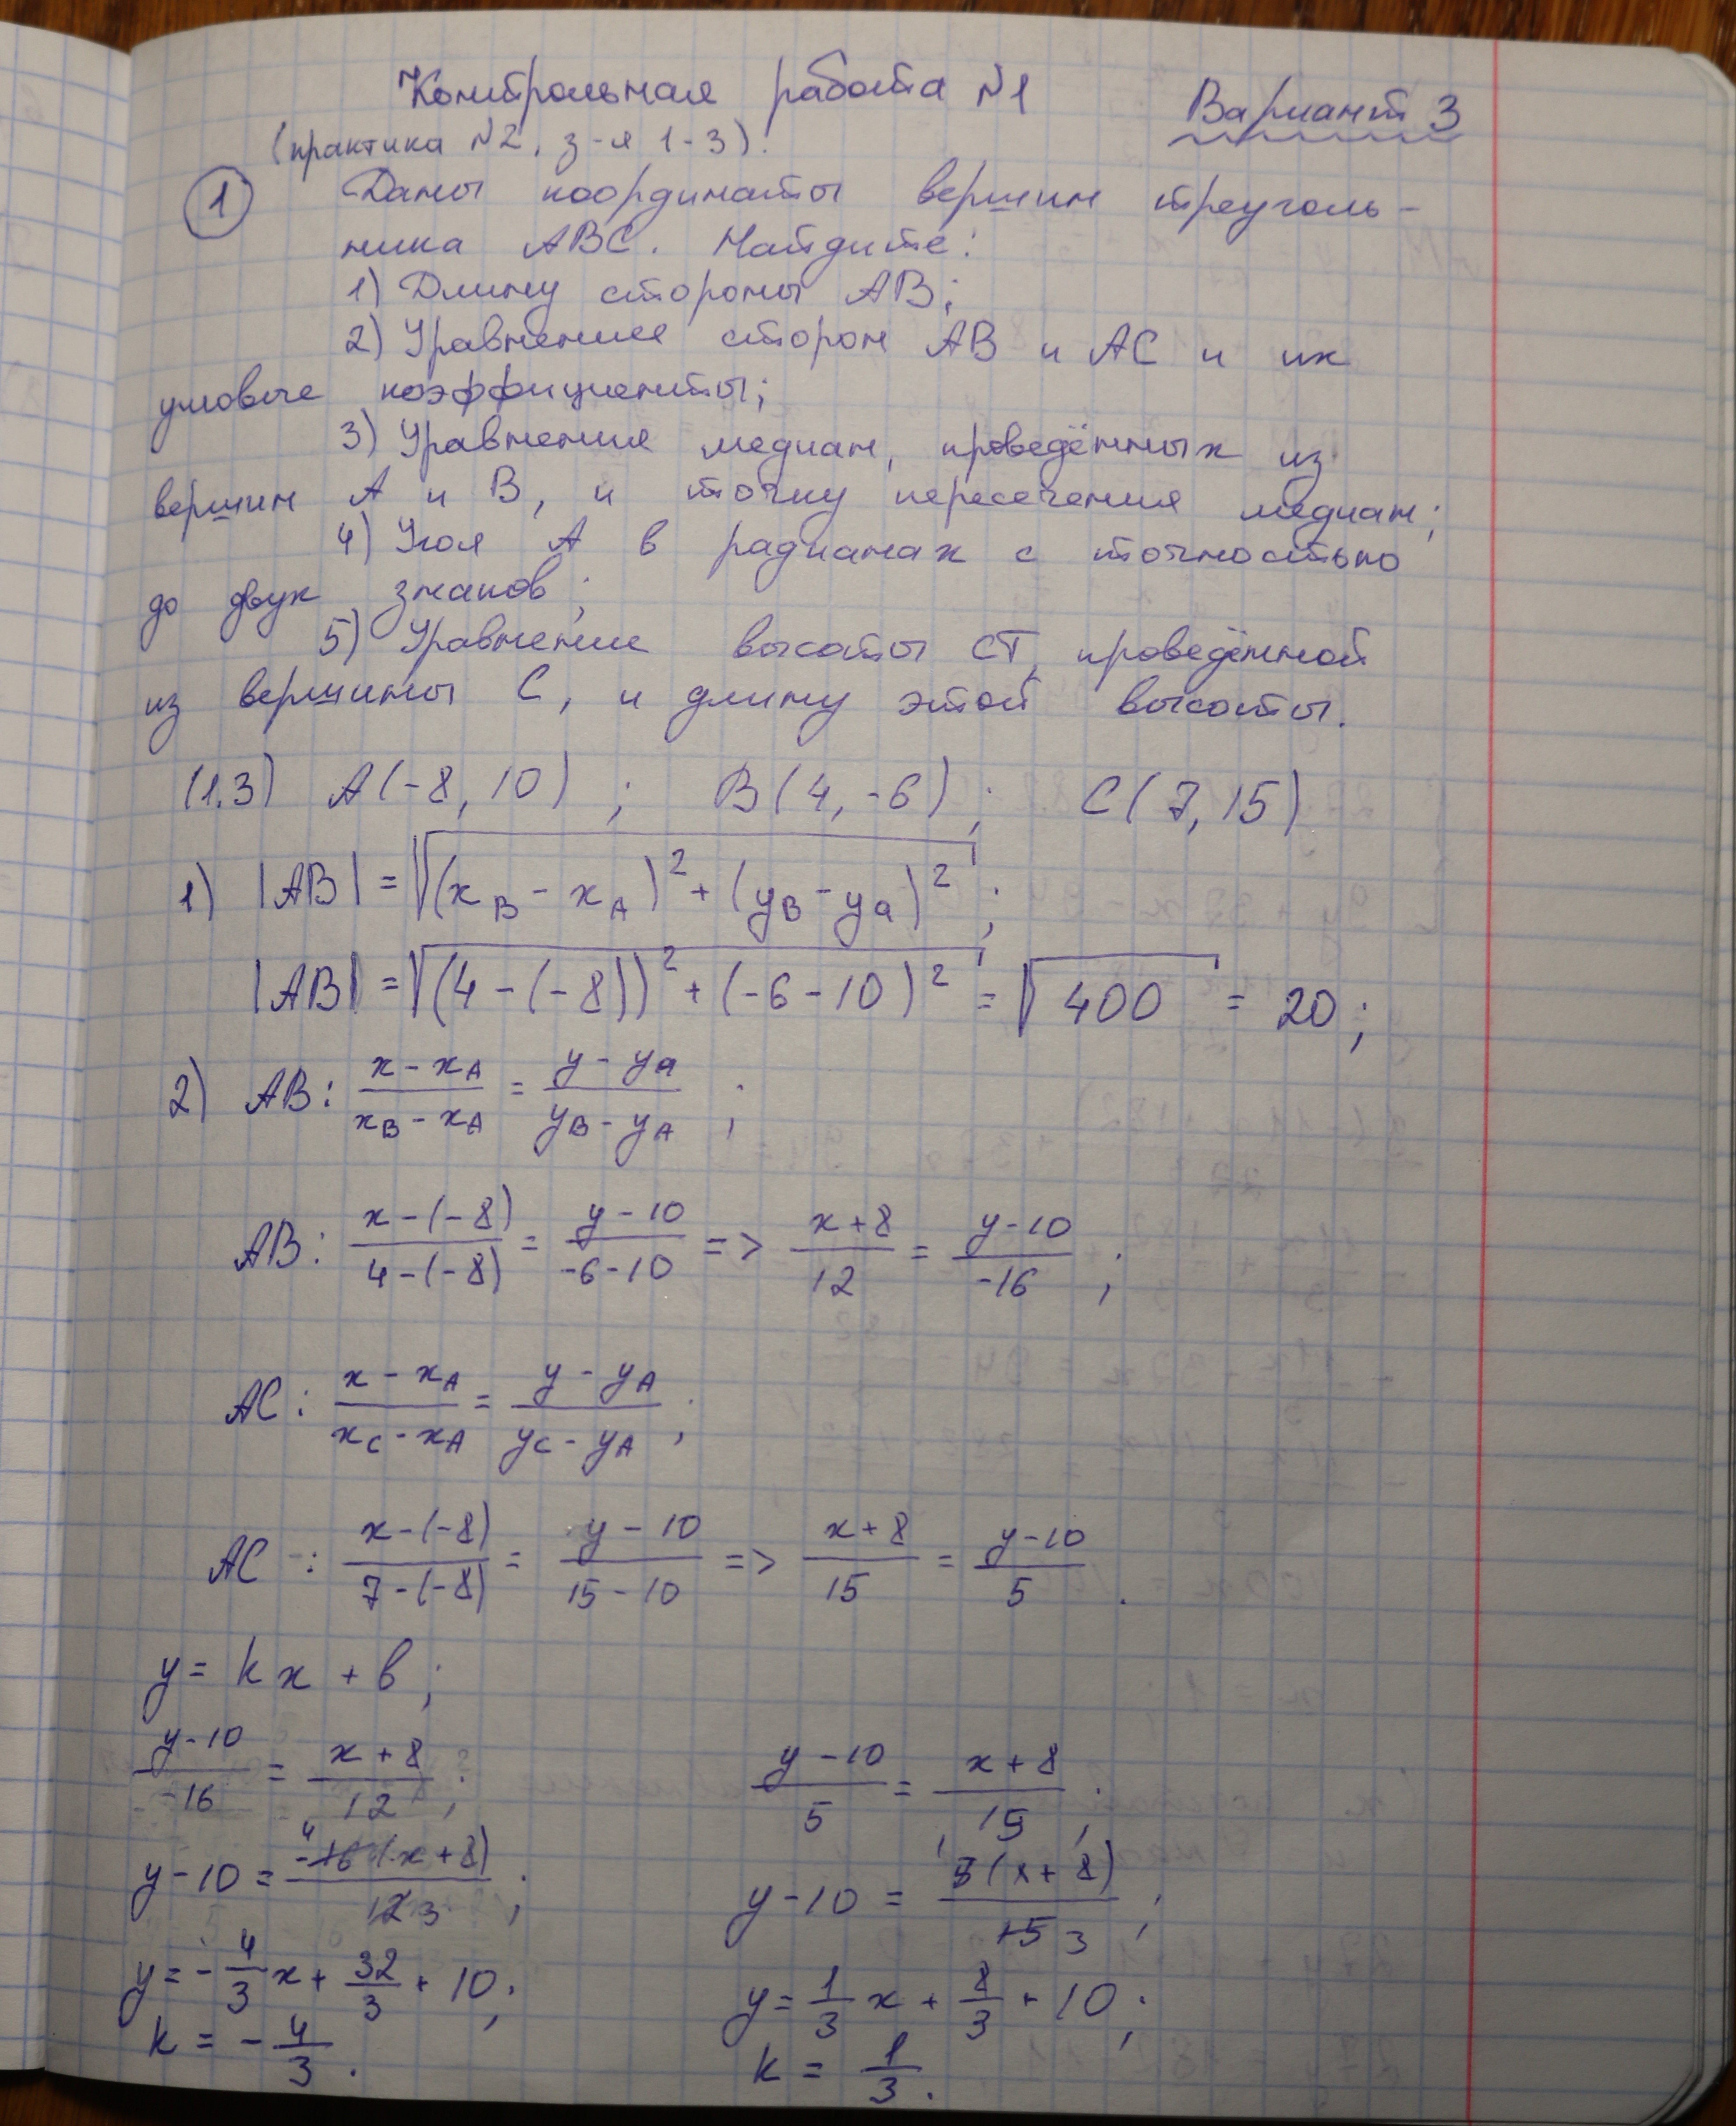 Контрольная работа №1
Вариант 3
(практика №2, з-я 1-3).
1 Даны координаты вершин треуголь-
ника ABC. Найдите:
1) Длину стороны AB;
2) Уравнения сторон AB и AC и их
угловые коэффициенты;
3) Уравнения медиан, проведённых из
вершин A и B, и точку пересечения медиан;
4) Угол A в радианах с точностью
до двух знаков;
5) Уравнение высоты CT, проведённой
из вершины C, и длину этой высоты.
(1.3) A(-8, 10) ; B(4, -6) ; C(7, 15)
1) |AB| = √((x_B - x_A)² + (y_B - y_A)²) ;
|AB| = √((4 - (-8))² + (-6 - 10)²) = √400 = 20 ;
2) AB: (x - x_A)/(x_B - x_A) = (y - y_A)/(y_B - y_A) ;
AB: (x - (-8))/(4 - (-8)) = (y - 10)/(-6 - 10) => (x + 8)/12 = (y - 10)/-16 ;
AC: (x - x_A)/(x_C - x_A) = (y - y_A)/(y_C - y_A) ;
AC: (x - (-8))/(7 - (-8)) = (y - 10)/(15 - 10) => (x + 8)/15 = (y - 10)/5 .
y = kx + b ;
(y - 10)/-16 = (x + 8)/12 ;
y - 10 = -16 4 (x + 8)/12 3 ;
y = -4/3 x + 32/3 + 10 ;
k = -4/3 .
(y - 10)/5 = (x + 8)/15 ;
y - 10 = 5 1 (x + 8)/15 3 ;
y = 1/3 x + 8/3 + 10 ;
k = 1/3 .